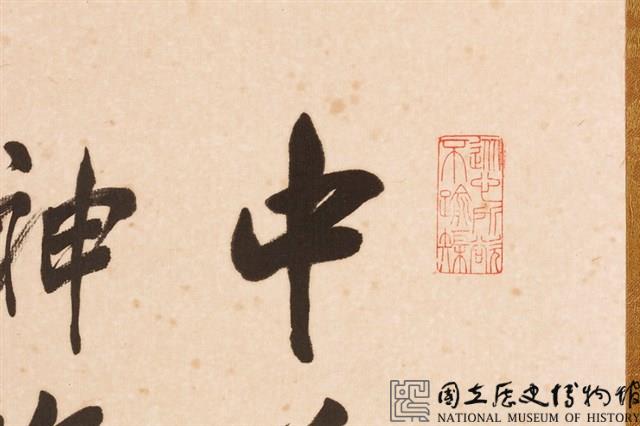 中
神
從心所欲
不踰榘
國立歷史博物館
NATIONAL MUSEUM OF HISTORY